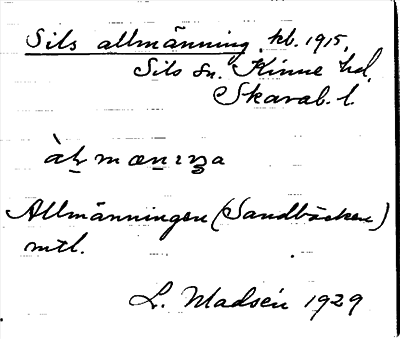 Sils allmänning, kb. 1915,
Sils sn. Kinne hd,
Skarab. l.
Allmänningen (Sandbäcken)
mtl.
L. Madsén 1929